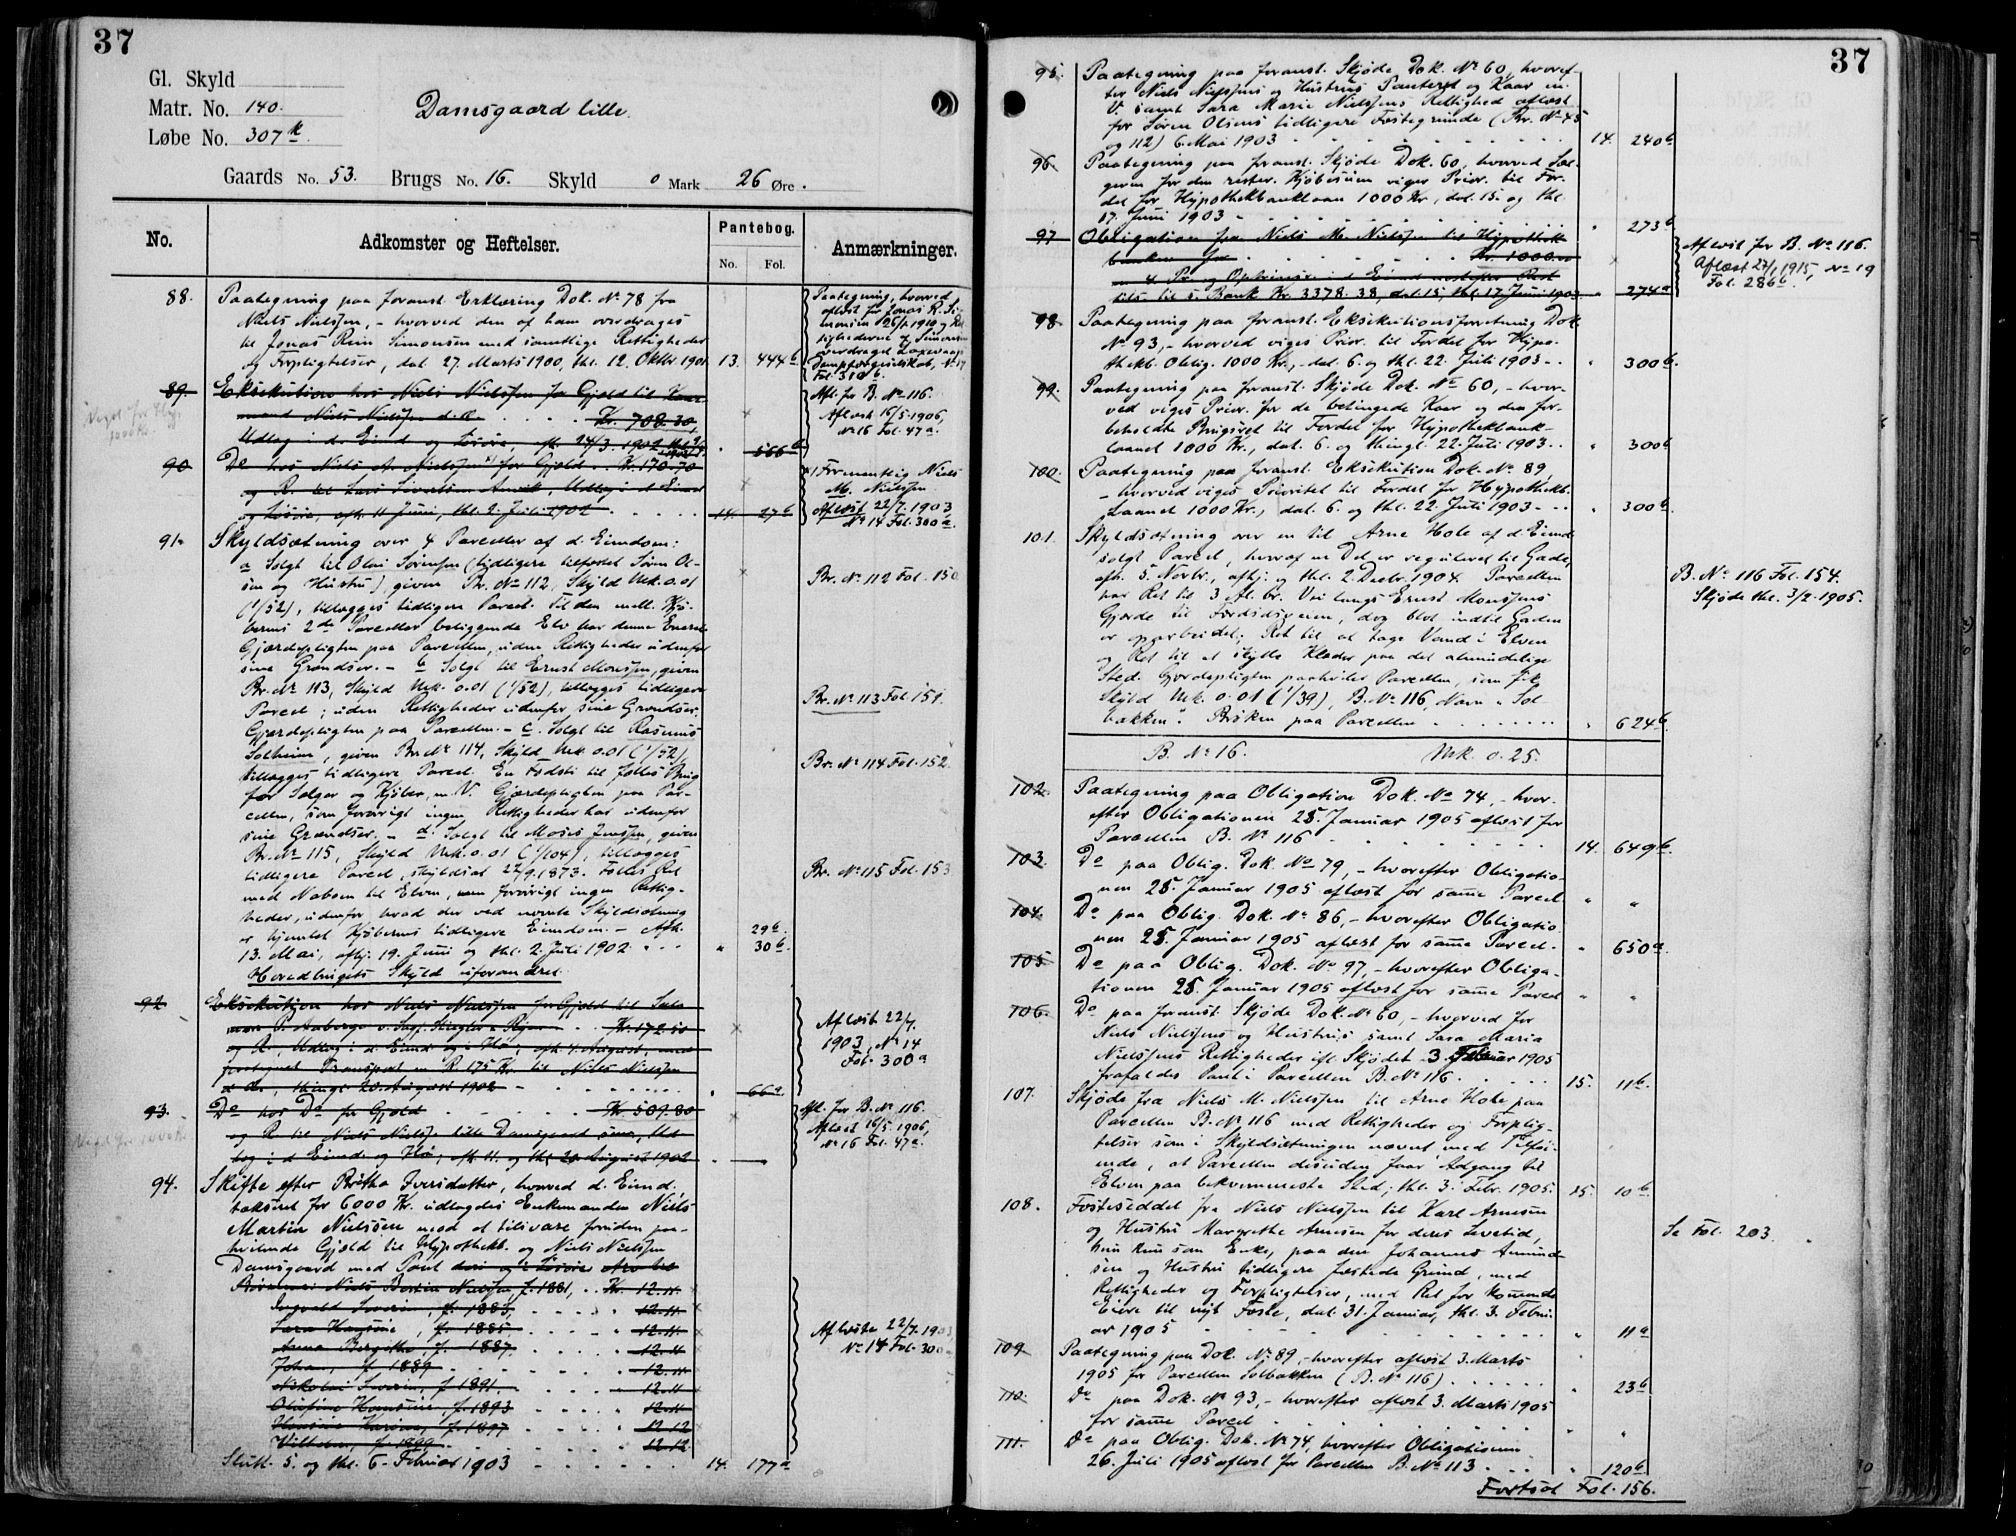 37
Gl. Skyld
Matr. No. 140.
Løbe No. 307 k
Damsgaard lille.
Gaards No. 53. Brugs No. 16. Skyld 0 Mark 26 Øre.
No. Adkomster og Heftelser. Pantebog. No. Fol. Anmærkninger.
88. Paategning paa foranst. Erklæring Dok. No 78 fra
Niels Nielssen, - hvorved den af ham overdrages
til Jonas Rein Simonsen med samtlige Rettigheder
og Forpligtelser, dat. 27. Marts 1900, thl. 12. Oktbr. 1901 13. 444 b
Paategning, hvorved
aflæst for Jonas R. Si-
monsen 26/1 1910 og
overdraget Laxevaags
Fol. 310 b.
89. Eksekution hos Niels Nielssen for Gjæld til
Niels Nielssen d. æ. Kr. 708.30,
Udlæg i d. Eiend. og Løsøre, afh. 24/3. 1902 " 556 b
Afl. for B. No 116.
Aflæst 16/5 1906,
No 16 Fol. 47 a.
90 Do hos Niels A. Nielssen x) for Gjæld Kr. 170.70
og R. til Lars Sivertsen Anvik, Udlæg i d. Eiend
og Løsøre, afh. 11 Juni, thl. 2. Juli 1902 14. 27 b
x) Formentlig Niels
M. Nielssen
Aflæst 22/7. 1903
No 14 Fol. 300 a.
91. Skyldsætning over 4 Parceller af d. Eiendom:
a Solgt til Olai Sørensen (tidligere tilfæstet Søren Ol-
sen og Hustru), given Br. No 112, Skyld Mrk. 0.01
(1/52), tillægges tidligere Parcel. Til den mell. Kjø-
berens 2de Parceller beliggende Elv har denne Eneret
Gjærdepligten paa Parcellen, uden Rettigheder udenfor
sine Grændser. - b Solgt til Ernst Monssen, given
Br. No 113, Skyld Mrk. 0.01 (1/52), tillægges tidligere
Parcel; uden Rettigheder udenfor sine Grændser.
Gjærdepligten paa Parcellen. - c. Solgt til Rasmus
Solheim, given Br. No 114, Skyld Mrk 0.01 (1/52),
tillægges tidligere Parcel. En Fodsti til fælles Brug
for Sælger og Kjøber, m. V. Gjærdepligten paa Par-
cellen, som forøvrigt ingen Rettigheder har udenfor
sine Grændser. - d. Solgt til Moses Jenssen, given
Br. No 115, Skyld Mrk. 0.01 (1/104), tillægges
tidligere Parcel, skyldsat 27/9. 1873. Fælles Ret
med Naboen til Elven, men forøvrigt ingen Rettig-
heder, udenfor hvad der ved nævnte Skyldsætning
er hjemlet Kjøberens tidligere Eiendom. - Afh. 29 b.
13. Mai, afhj. 19. Juni og thl. 2. Juli 1902. " 30 b.
Hovedbrugets Skyld uforandret.
Br. No 112 Fol. 150
Br. No 113 Fol. 151.
Br. No 114 Fol. 152
Br. No 115 Fol. 153
92 Eksekution hos Niels Nielssen for Gjæld til
Kr. 172.50
og R., Udlæg i d. Eiend. og Hø, afh. 4. August, med
Transport R. 175 Kr. til Niels Nielssen
d. æ., thingl. 20. August 1902 " 66 a
Aflæst 22/7.
1903, No 14
Fol. 300 a
93. Do hos Do for Gjæld Kr. 509.80
og R. til Niels Nielssen lille Damsgaard Ud-
læg i d. Eiend. og Hø, afh. 11. og thl. 20 August 1902
Afl. for B. No 116.
Aflæst 16/5. 1906,
No 16 Fol. 47 a.
94. Skifte efter Britha Iversdatter, hvorved d. Eiend.
takseret for 6000 Kr. udlagdes Enkemanden Niels
Martin Nielssen mod at tilsvare foruden paa-
hvilende Gjæld til Hypothekb. og Niels Nielssen
Damsgaard med Pant deri og i Løsøre Arv til
Børnene: Niels Berton Nielssen, f. 1881, Kr. 12.11
Ingvald Severin, f. 1883 12.11
Sara Hansine, f. 1885 12.11
Anna Bergithe, f. 1887 12.11
Johan, f. 1889 12.11
Nikolai Severin, f. 1891. 12.11
Olufine Hansine, f. 1893 12.11
Karine, f. 1897 12.12
Vilhelm, f. 1899 12.12
Aflæste 22/7. 1903
No 14 Fol. 300
Slutt. 5. og thl. 6. Februar 1903 14. 177 a
37
95. Paategning paa foranst. Skjøde Dok. No 60, hvoref-
ter Niels Nielssens og Hustrus Panteret og Kaar m.
V. samt Sara Marie Nielssens Rettighed aflæst
for Søren Olsens tidligere Fæstegrunde (Br. No 45
og 112) 6. Mai 1903 14. 240 b
96. Paategning paa foranst. Skjøde Dok. 60, hvorved Sæl-
geren for den rester. Kjøbesum viger Prior. til For-
del for Hypothekbanklaan 1000 Kr., dat. 15. og thl.
17. Juni 1903 " 273 b
97 Obligation fra Niels M. Nielssen til Hypothek-
banken for Kr. 1000.00
m. 4 Pr. og Optrinsr. i Eiend. næstefter Rest
tilb. til s. Bank Kr. 3378.38, dat. 15, thl. 17 Juni 1903 " 274 a
Aflæst for B. No 116.
Aflæst 27/1 1915, No 19
Fol. 286 b.
98 Paategning paa foranst. Eksekutionsforretning Dok.
No 93, - hvorved viges Prior. til Fordel for Hypo-
thekb. Oblig. 1000 Kr., dat. 6. og thl. 22. Juli 1903 " 300 b.
99. Paategning paa foranst. Skjøde Dok. No 60, - hvor-
ved viges Prior. for de betingede Kaar og den for-
beholdte Brugsret til Fordel for Hypothekbank-
laanet 1000 Kr., dat. 6. og thingl. 22. Juli 1903 " 300 b
100. Paategning paa foranst. Eksekution Dok. No 89,
- hvorved viges Prioritet til Fordel for Hypothekb.
Laanet 1000 Kr., dat. 6. og thl. 22. Juli 1903 " 300 b.
101. Skyldsætning over en til Arne Hole af d. Eiend
solgt Parcel, hvoraf en Del er reguleret til Gade,
afh. 5. Novbr., afhj. og thl. 2. Decbr. 1904. Parcellen
har Ret til 3 Al. br. Vei langs Ernst Monssens
Gjerde til Færdselsveien, dog blot indtil Gaden
er oparbeidet; Ret til at tage Vand i Elven
og Ret til at skylle Klæder paa det almindelige
Sted. Gjerdepligten paahviler Parcellen, som fik
Skyld Mrk. 0.01 (1/39), B. No 116, Navn "Sol-
bakken". Brøken paa Parcellen " 624 b
B. No 116 Fol. 154.
Skjøde thl. 3/2. 1905.
B. No 16. Mrk. 0.25.
102. Paategning paa Obligation Dok. No 74, - hvor-
efter Obligationen 25. Januar 1905 aflæst for
Parcellen B. No 116 14. 649 b.
103. Do paa Oblig. Dok. No 79, - hvorefter Obligatio-
nen 25. Januar 1905 aflæst for samme Parcel " "
104. Do paa Oblig. Dok. No 86, - hvorefter Obligatio-
nen 25. Januar 1905 aflæst for samme Parcel. " 650 a.
105. Do paa Oblig. Dok. No 97, - hvorefter Obliga-
tionen 25. Januar 1905 aflæst for samme Parcel " "
106. Do paa foranst. Skjøde Dok. No 60, - hvorved for
Niels Nielssens og Hustrus samt Sara Maria
Nielssens Rettigheder ifl. Skjødet 3. Februar 1905
frafaldes Pant i Parcellen B. No 116. 15. 11 b.
107. Skjøde fra Niels M. Nielssen til Arne Hole paa
Parcellen B. No 116 med Rettigheder og Forplig-
telser som i Skyldsætningen nævnt med Tilføi-
ende, at Parcellen desuden faar Adgang til
Elven paa bekvemmeste Sted; thl. 3. Febr. 1905. 15. 10 b
108. Fæsteseddel fra Niels Nielssen til Karl Arnesen
og Hustru Margrethe Arnesen for deres Levetid,
hun kun som Enke, paa den Johannes Amund-
sen og Hustru tidligere fæstede Grund, med
Rettigheder og Forpligtelser, med Ret for kommende
Eiere til nyt Fæste, dat. 31. Januar, thl. 3. Febru-
ar 1905 " 11 a
Se Fol. 203.
109 Paategning paa Dok. No 89, - hvorefter aflæst 3. Marts
1905 for Parcellen Solbakken (B. No 116) " 23 b
110. Do paa Dok. No 93, - hvorefter aflæst 3. Marts 1905
for samme Parcel " "
111. Do paa Oblig. Dok. No 74, hvorefter Obligationen
26. Juli 1905 aflæst for Parcellen B. No 113 " 120 b
Fortsat Fol. 156.